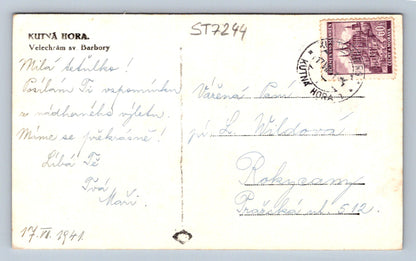 ST7244
KUTNÁ HORA.
Velechrám sv Barbory
Milá tetulko!
Posílám Ti vzpomínku
z nádherného výletu.
Máme se překrásně!
Líbá Tě
Tvá
Mari.
17. VI. 1941.
Vážená Paní
pí. L. Wildová
Rokycany
Pražská ul. 512.
KUTNÁ HORA 1
60